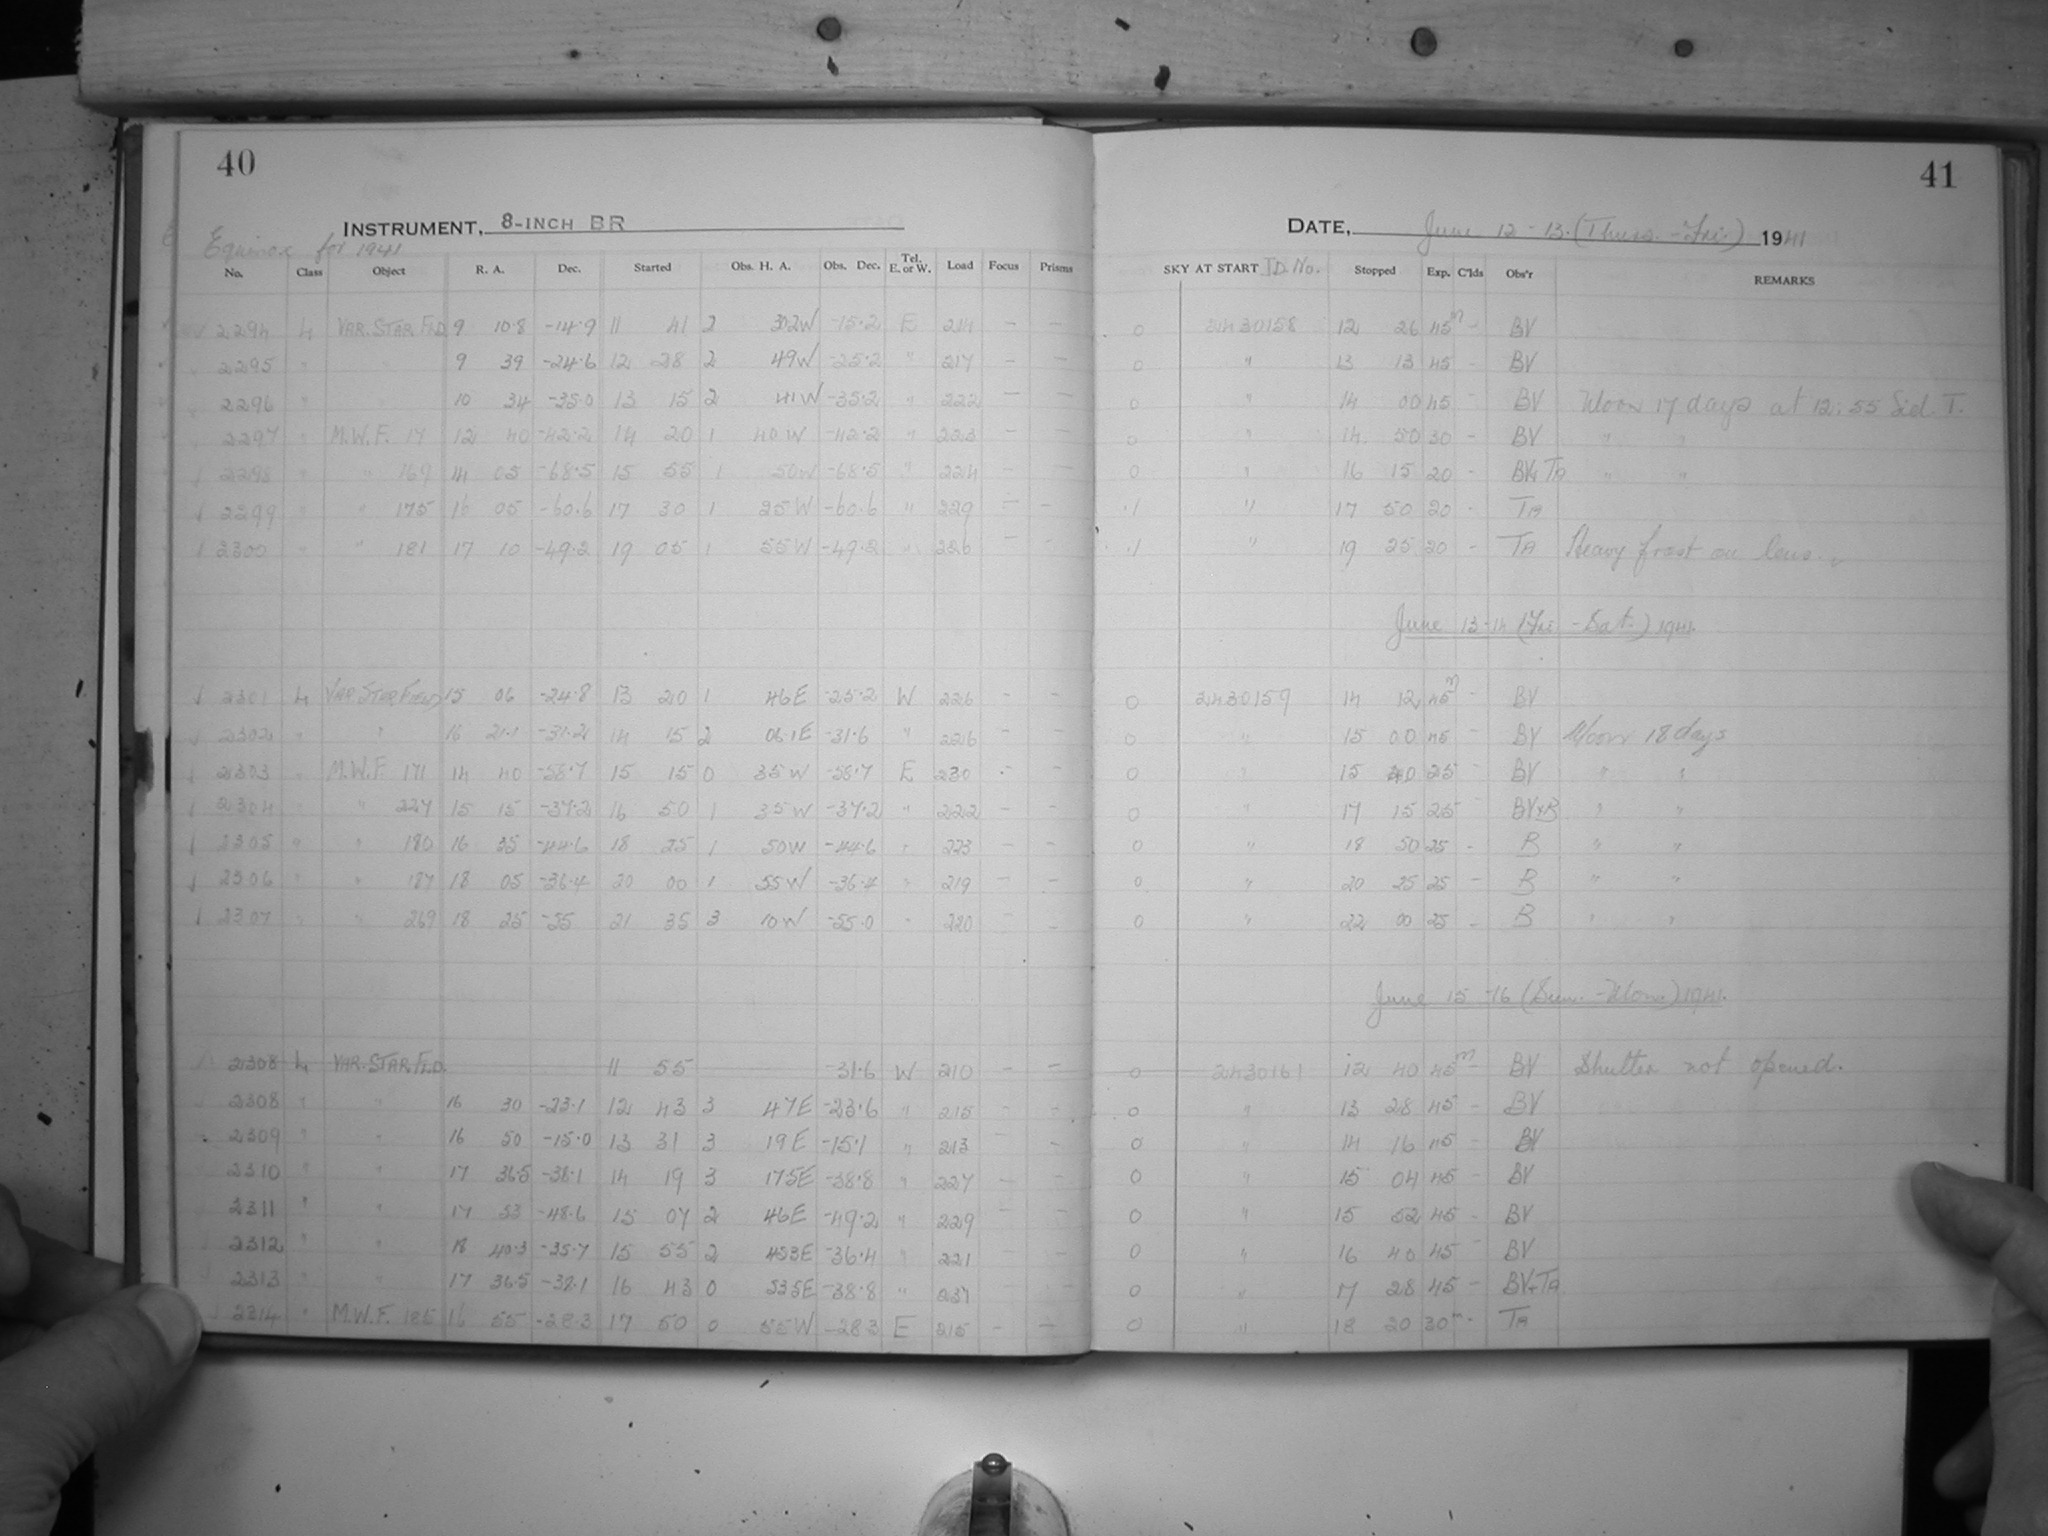 40
INSTRUMENT, 8-INCH BR
Equinox for 1941
No. Class Object R. A. Dec. Started Obs. H. A. Obs. Dec. Tel. E. or W. Load Focus Prisms
2294 L VAR. STAR FLD. 9 10.8 -14.9 11 41 2 30.2W -15.2 E 214 - -
2295 " " 9 39 -24.6 12 28 2 49W -25.2 " 217 - -
2296 " " 10 34 -35.0 13 15 2 41W -35.2 " 222 - -
2297 " M.W.F. 17 12 40 -42.2 14 20 1 40W -42.2 " 223 - -
2298 " " 169 14 05 -68.5 15 55 1 50W -68.5 " 224 - -
2299 " " 175 16 05 -60.6 17 30 1 25W -60.6 " 229 - -
2300 " " 181 17 10 -49.2 19 05 1 55W -49.2 " 226 - -
2301 L VAR STAR FIELD 15 06 -24.8 13 20 1 46E -25.2 W 226 - -
2302 " " 16 21.1 -31.2 14 15 2 06.1E -31.6 " 226 - -
2303 " M.W.F. 171 14 40 -58.7 15 15 0 35W -58.7 E 230 - -
2304 " " 227 15 15 -37.2 16 50 1 35W -37.2 " 222 - -
2305 " " 180 16 35 -44.6 18 25 1 50W -44.6 " 223 - -
2306 " " 187 18 05 -36.4 20 00 1 55W -36.4 " 219 - -
2307 " " 269 18 25 -55 21 35 3 10W -55.0 " 220 - -
2308 L VAR. STAR FLD. 11 55 -31.6 W 210 - -
2308 " " 16 30 -23.1 12 43 3 47E -23.6 " 215 - -
2309 " " 16 50 -15.0 13 31 3 19E -15.1 " 213 - -
2310 " " 17 36.5 -38.1 14 19 3 17.5E -38.8 " 227 - -
2311 " " 17 53 -48.6 15 07 2 46E -49.2 " 229 - -
2312 " " 18 40.3 -35.7 15 55 2 45.3E -36.4 " 221 - -
2313 " " 17 36.5 -38.1 16 43 0 53.5E -38.8 " 237 - -
2314 " M.W.F. 185 16 55 -28.3 17 50 0 55W -28.3 E 215 - -
41
DATE, June 12-13. (Thurs. - Fri.) 1941
SKY AT START J.D. No. Stopped Exp. C'lds Obs'r REMARKS
0 2430158 12 26 45m - BV
0 " 13 13 45 - BV
0 " 14 00 45 - BV Moon 17 days at 12:55 Sid. T.
0 " 14 50 30 - BV " "
0 " 16 15 20 - BV+TA " "
.1 " 17 50 20 - TA
.1 " 19 25 20 - TA Heavy frost on lens.
June 13-14 (Fri. - Sat.) 1941.
0 2430159 14 12 45m - BV
0 " 15 00 45 - BV Moon 18 days
0 " 15 40 25 - BV " "
0 " 17 15 25 BV+B " "
0 " 18 50 25 - B " "
0 " 20 25 25 - B " "
0 " 22 00 25 - B " "
June 15-16 (Sun. - Mon.) 1941.
0 2430161 12 40 45m - BV Shutter not opened.
0 " 13 28 45 - BV
0 " 14 16 45 - BV
0 " 15 04 45 - BV
0 " 15 52 45 - BV
0 " 16 40 45 - BV
0 " 17 28 45 - BV+TA
0 " 18 20 30m - TA